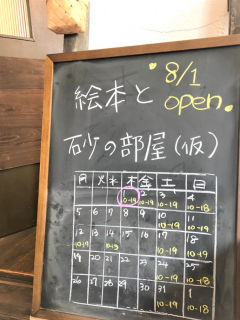 8/1
open.
絵本と
砂の部屋(仮)
月 火 水 木 金 土 日
1 2 3 4
10-19 10-19 10-19 10-18
5 6 7 8 9 10 11
10-19 10-18
12 13 14 15 16 17 18
10-19 10-19 10-18
19 20 21 22 23 24 25
10-19 10-18
26 27 28 29 30 31
10-19 10-18